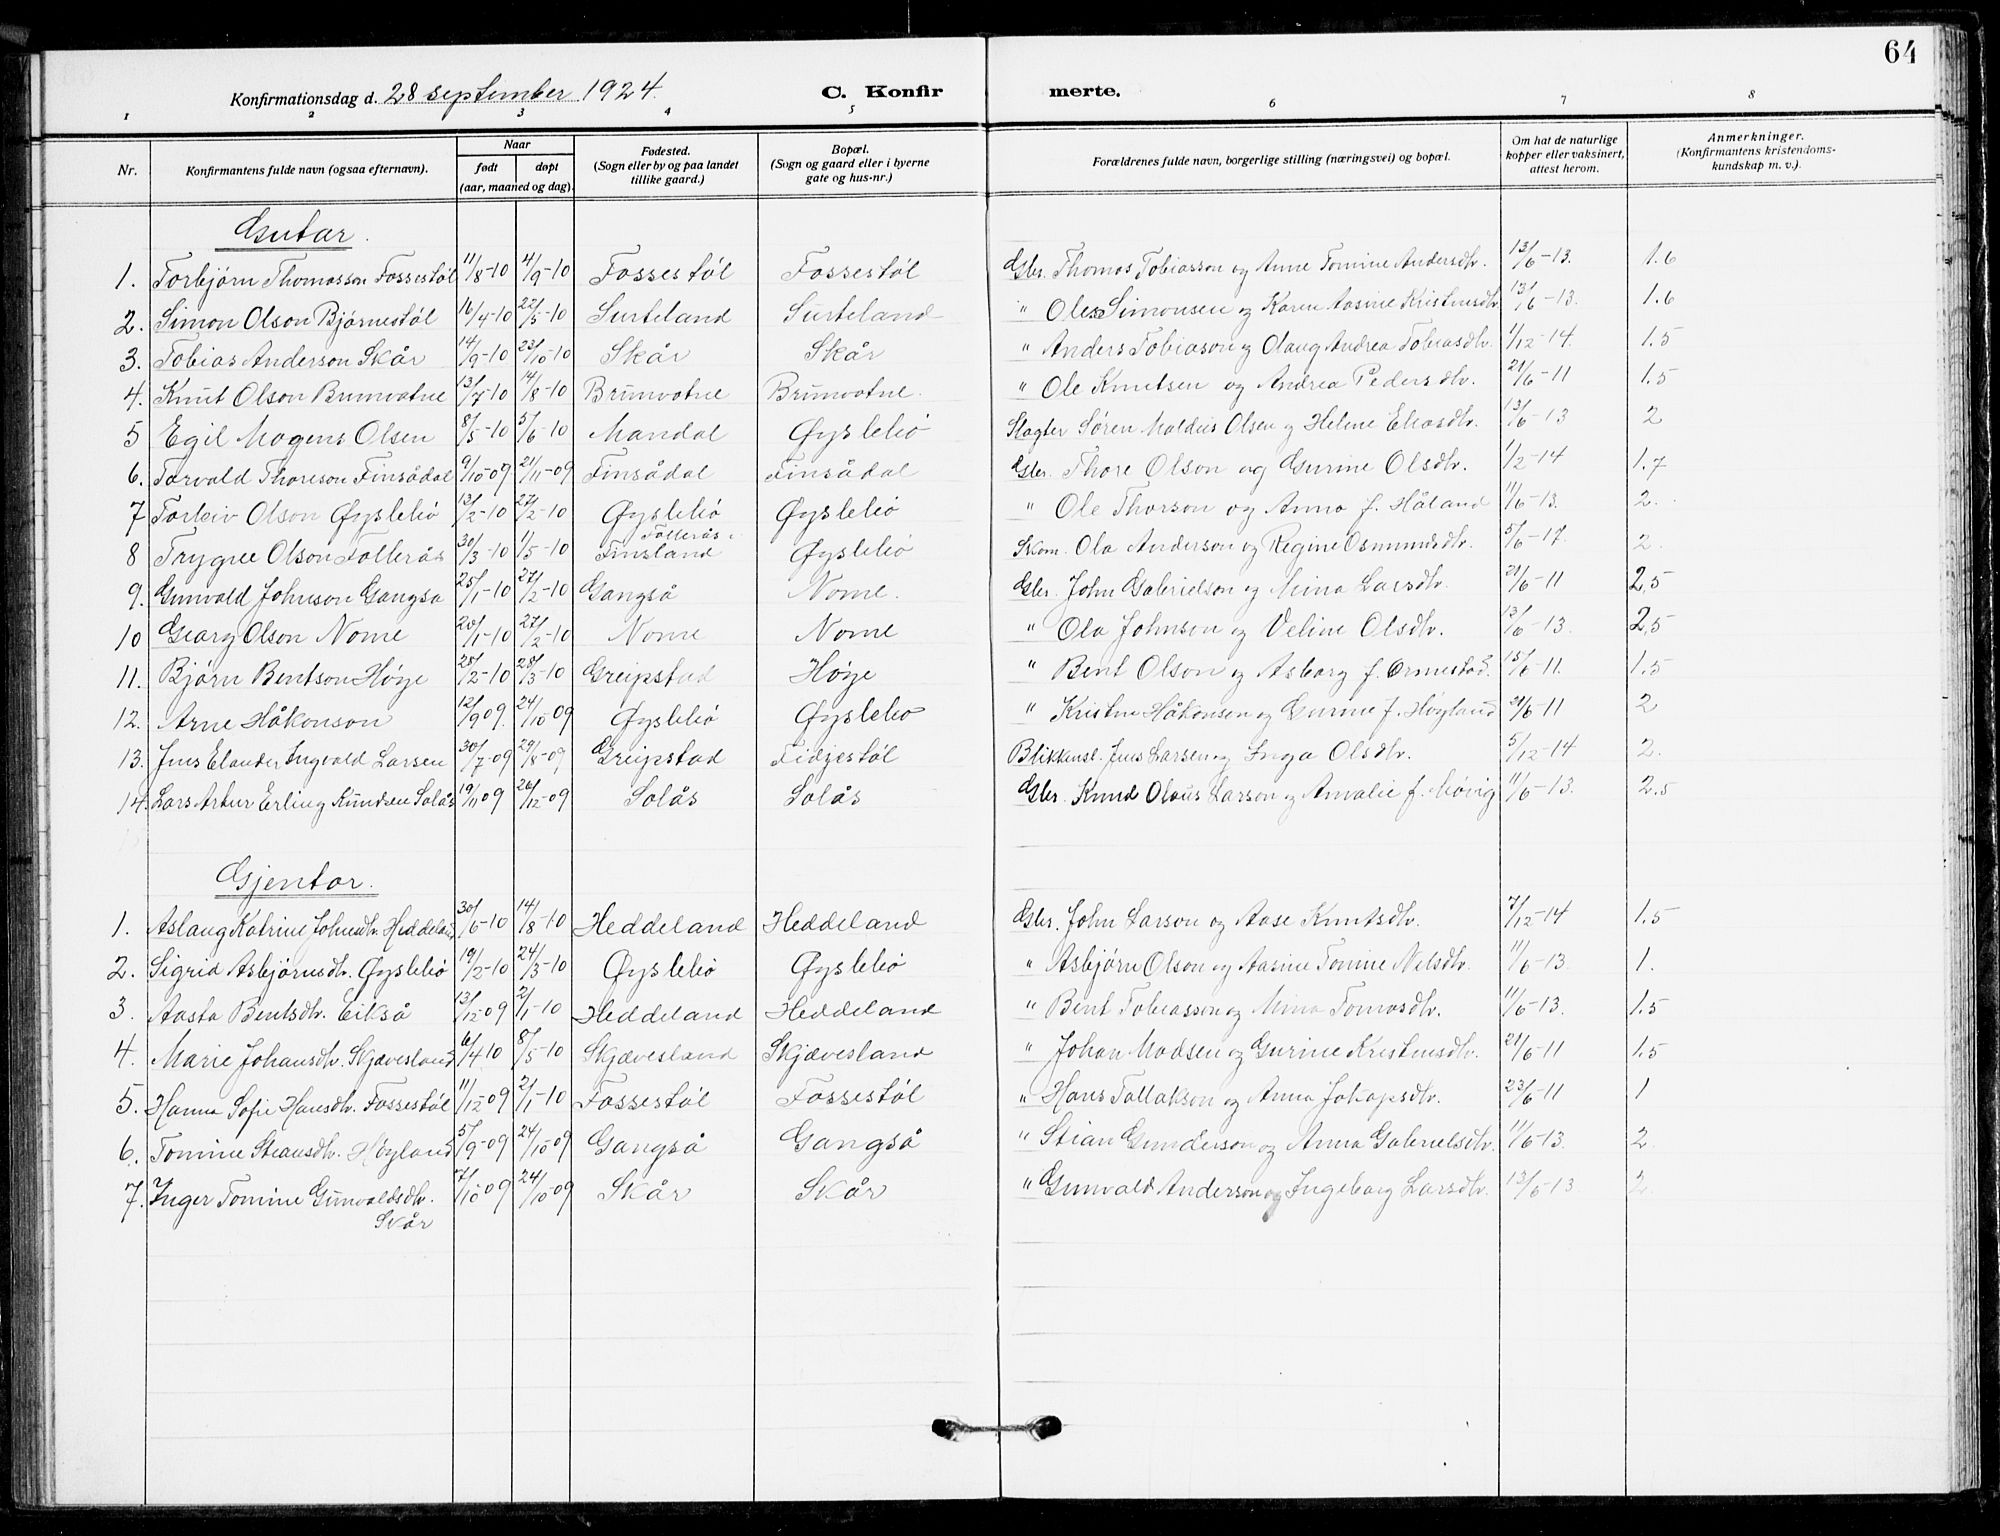 64
Konfirmationsdag d. 28 september 1924. C. Konfirmerte.
1 2 3 4 5 6 7 8
Nr. Konfirmantens fulde navn (ogsaa efternavn). Naar født døpt (aar, maaned og dag). Fødested. (Sogn eller by og paa landet tillike gaard.) Bopæl. (Sogn og gaard eller i byerne gate og hus-nr.) Forældrenes fulde navn, borgerlige stilling (næringsvei) og bopæl. Om hat de naturlige kopper eller vaksinert, attest herom. Anmerkninger. (Konfirmantens kristendomskundskap m. v.).
Gutar.
1. Torbjørn Thomasson Fossestøl 11/8-10 4/9-10 Fossestøl Fossestøl Gbr. Thomas Tobiasson og Anne Tomine Andersdtr. 13/6-13. 1.6
2. Simon Olson Bjørnestøl 16/4-10 22/5-10 Surteland Surteland " Ole Simonsen og Karen Aasine Kristensdtr 13/6-13. 1.6
3. Tobias Anderson Skår 14/9-10 23/10-10 Skår Skår " Anders Tobiason og Olaug Andrea Tobiasdtr. 1/12-14. 1.5
4. Knut Olson Brunvatne 13/7-10 14/8-10 Brunvatne Brunvatne. " Ole Knutsen og Andrea Pedersdtr. 21/6-11 1.5
5 Egil Mogens Olsen 8/5-10 5/6-10 Mandal Øyslebø Slagter Søren Maldius Olsen og Helene Eliasdtr. 13/6-13 2
6. Torvald Thoreson Finsådal 9/10-09 21/11-09 Finsådal Finsådal Gbr. Thore Olson og Gurine Olsdtr. 1/2-14 1.7
7 Torleiv Olson Øyslebø 13/2-10 27/2-10 Øyslebø Øyslebø " Ole Thorson og Anna f. Håland 11/6-13. 2.
8 Trygve Olson Follerås 30/3-10 1/5-10 Follerås i Finsland Øyslebø Skom. Ola Anderson og Regine Osmundsdtr. 5/6-17. 2.
9. Gunvald Johnson Gangså 25/1-10 27/2-10 Gangså Nome. Gbr. John Gabrielson og Mina Larsdtr. 21/6-11 2,5
10 Georg Olson Nome 20/1-10 27/2-10 Nome Nome " Ola Johnson og Veline Olsdtr. 13/6-13. 2,5
11. Bjørn Bentson Høye 25/2-10 28/3-10 Greipstad Høye " Bent Olson og Asborg f. Ormestad. 15/6-11. 1.5
12. Arne Håkonson 12/9 09. 24/10-09 Øyslebø Øyslebø " Kristen Håkonsen og Gurine f. Høyland 21/6-11 2
13. Jens Elander Ingvald Larsen 30/7-09 29/8-09, Greipstad Fidjestøl Blikkensl. Jens Larsen og Inga Olsdtr. 5/12-14 2.
14. Lars Artur Erling Knudsen Solås 19/11 09 26/12-09 Solås Solås Gbr. Knud Olaus Larson og Amalie f. Møvig 11/6-13. 2.5
Gjentor.
1. Aslaug Katrine Johnsdtr. Heddeland 30/6-10 14/8-10 Heddeland Heddeland Gbr. John Larson og Aase Knutsdtr. 7/12-14 1.5
2. Sigrid Asbjørnsdtr. Øyslebø 19/2-10 24/3-10 Øyslebø Øyslebø " Asbjørn Olson og Aasine Tomine Nilsdtr. 11/6-13. 1.
3. Aasta Bentsdtr. Eikså 13/12-09 2/1-10 Heddeland Heddeland " Bent Tobiasson og Mina Tomasdtr. 11/6-13. 1.5
4. Marie Johansdtr. Skjævesland 6/4 10 8/5-10 Skjævesland Skjævesland " Johan Madsen og Gurine Kristensdtr. 21/6-11 1.5
5. Hanna Sofie Hansdtr. Fossestøl 11/12-09 2/1-10 Fossestøl Fossestøl " Hans Tallakson og Anna Jakopsdtr. 23/6-11 1
6. Tomine Stiansdtr. Høyland 5/9-09 24/10-09 Gangså Gangså " Stian Gunderson og Anna Gabrielsdtr. 11/6-13. 2.
7. Inger Tomine Gunvaldsdtr. Skår 7/10-09 24/10-09 Skår Skår " Gunvald Anderson og Ingeborg Larsdtr. 13/6-13 2.